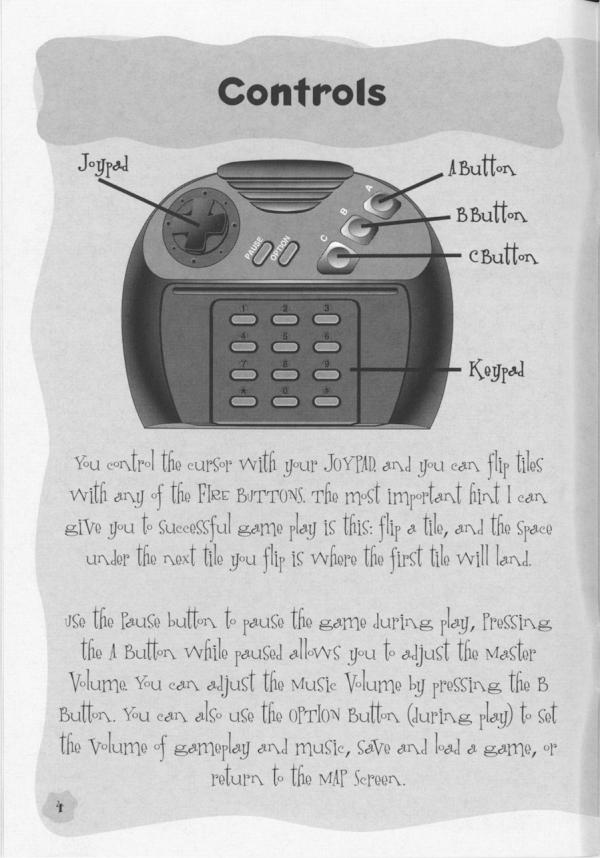 Controls
Joypad
A Button
B Button
C Button
A
B
C
PAUSE
OPTION
1 2 3
4 5 6
7 8 9
* 0 #
Keypad
You control the cursor with your JOYPAD, and you can flip tiles
with any of the FIRE BUTTONS. The most important hint I can
give you to successful game play is this: flip a tile, and the space
under the next tile you flip is where the first tile will land.
Use the Pause button to pause the game during play, Pressing
the A Button while paused allows you to adjust the Master
Volume. You can adjust the Music Volume by pressing the B
Button. You can also use the OPTION Button (during play) to set
the Volume of gameplay and music, save and load a game, or
return to the MAP Screen.
4